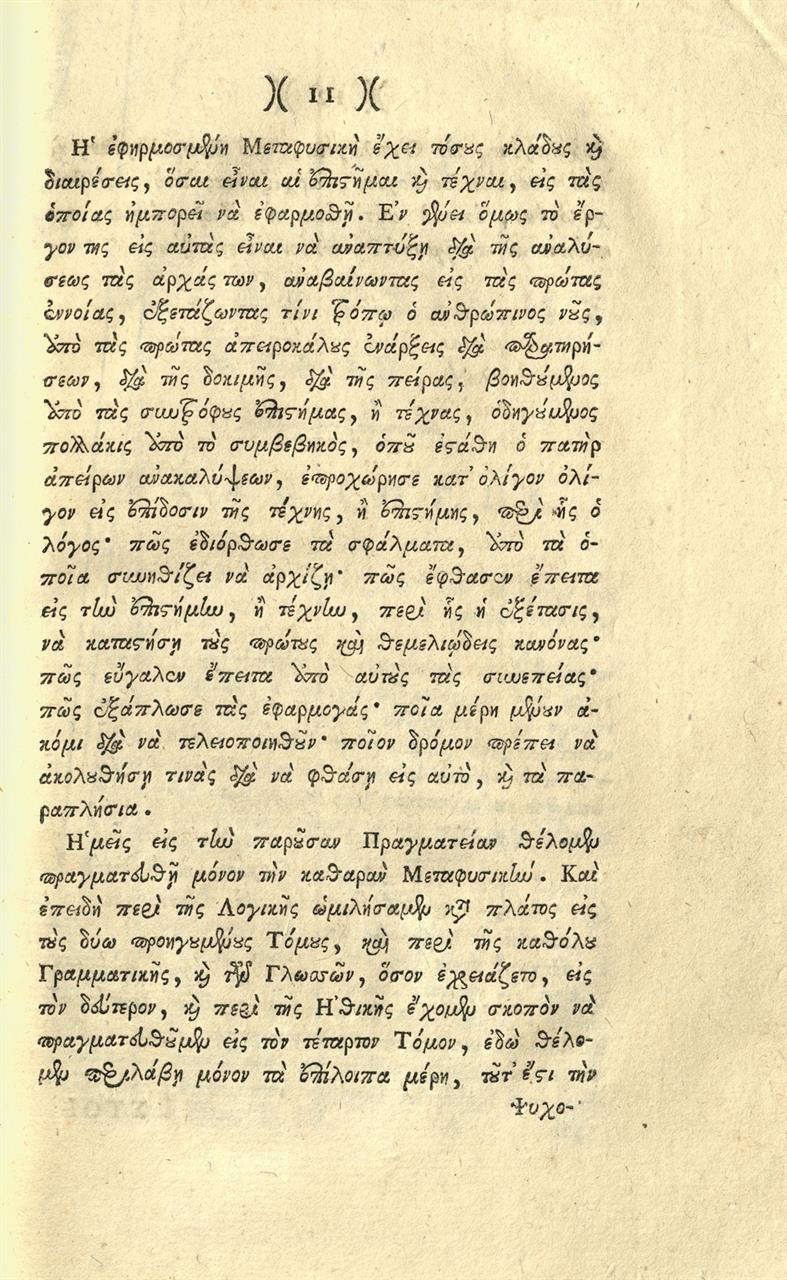 )( 11 )(
Ἡ ἐφηρμοσμένη Μεταφυσικὴ ἔχει τόσους κλάδους καὶ
διαιρέσεις, ὅσαι εἶναι αἱ ἐπιστῆμαι καὶ τέχναι, εἰς τὰς
ὁποίας ἠμπορεῖ νὰ ἐφαρμοθῇ. Ἐν γένει ὅμως τὸ ἔρ-
γον της εἰς αὐτὰς εἶναι νὰ ἀναπτύξῃ διὰ τῆς ἀναλύ-
σεως τὰς ἀρχάς των, ἀναβαίνωντας εἰς τὰς πρώτας
ἐννοίας, ἐξετάζωντας τίνι τρόπῳ ὁ ἀνθρώπινος νοῦς,
ἀπὸ τὰς πρώτας ἀπειροκάλους ἐνάρξεις διὰ παρατηρή-
σεων, διὰ τῆς δοκιμῆς, διὰ τῆς πείρας, βοηθούμενος
ἀπὸ τὰς συντρόφους ἐπιστήμας, ἢ τέχνας, ὁδηγούμενος
πολλάκις ἀπὸ τὸ συμβεβηκὸς, ὁποῦ ἐστάθη ὁ πατὴρ
ἀπείρων ἀνακαλύψεων, ἐπροχώρησε κατ' ὀλίγον ὀλί-
γον εἰς ἐπίδοσιν τῆς τέχνης, ἢ ἐπιστήμης, περὶ ἧς ὁ
λόγος· πῶς ἐδιόρθωσε τὰ σφάλματα, ἀπὸ τὰ ὁ-
ποῖα συνηθίζει νὰ ἀρχίζῃ· πῶς ἔφθασεν ἔπειτα
εἰς τὴν ἐπιστήμην, ἢ τέχνην, περὶ ἧς ἡ ἐξέτασις,
νὰ καταστήσῃ τοὺς πρώτους καὶ θεμελιώδεις κανόνας·
πῶς εὔγαλεν ἔπειτα ἀπὸ αὐτοὺς τὰς συνεπείας·
πῶς ἐξάπλωσε τὰς ἐφαρμογάς· ποῖα μέρη μένουν ἀ-
κόμι διὰ νὰ τελειοποιηθοῦν· ποῖον δρόμον πρέπει νὰ
ἀκολουθήσῃ τινὰς διὰ νὰ φθάσῃ εἰς αὐτὸ, καὶ τὰ πα-
ραπλήσια.
Ἡμεῖς εἰς τὴν παροῦσαν Πραγματείαν θέλομεν
πραγματευθῇ μόνον τὴν καθαρὰν Μεταφυσικήν. Καὶ
ἐπειδὴ περὶ τῆς Λογικῆς ὡμιλήσαμεν κατὰ πλάτος εἰς
τοὺς δύω προηγουμένους Τόμους, καὶ περὶ τῆς καθόλου
Γραμματικῆς, καὶ τῶν Γλωσσῶν, ὅσον ἐχρειάζετο, εἰς
τὸν δεύτερον, καὶ περὶ τῆς Ἠθικῆς ἔχομεν σκοπὸν νὰ
πραγματευθοῦμεν εἰς τὸν τέταρτον Τόμον, ἐδὼ θέλο-
μεν περιλάβῃ μόνον τὰ ἐπίλοιπα μέρη, τοῦτ' ἔστι τὴν
Ψυχο-